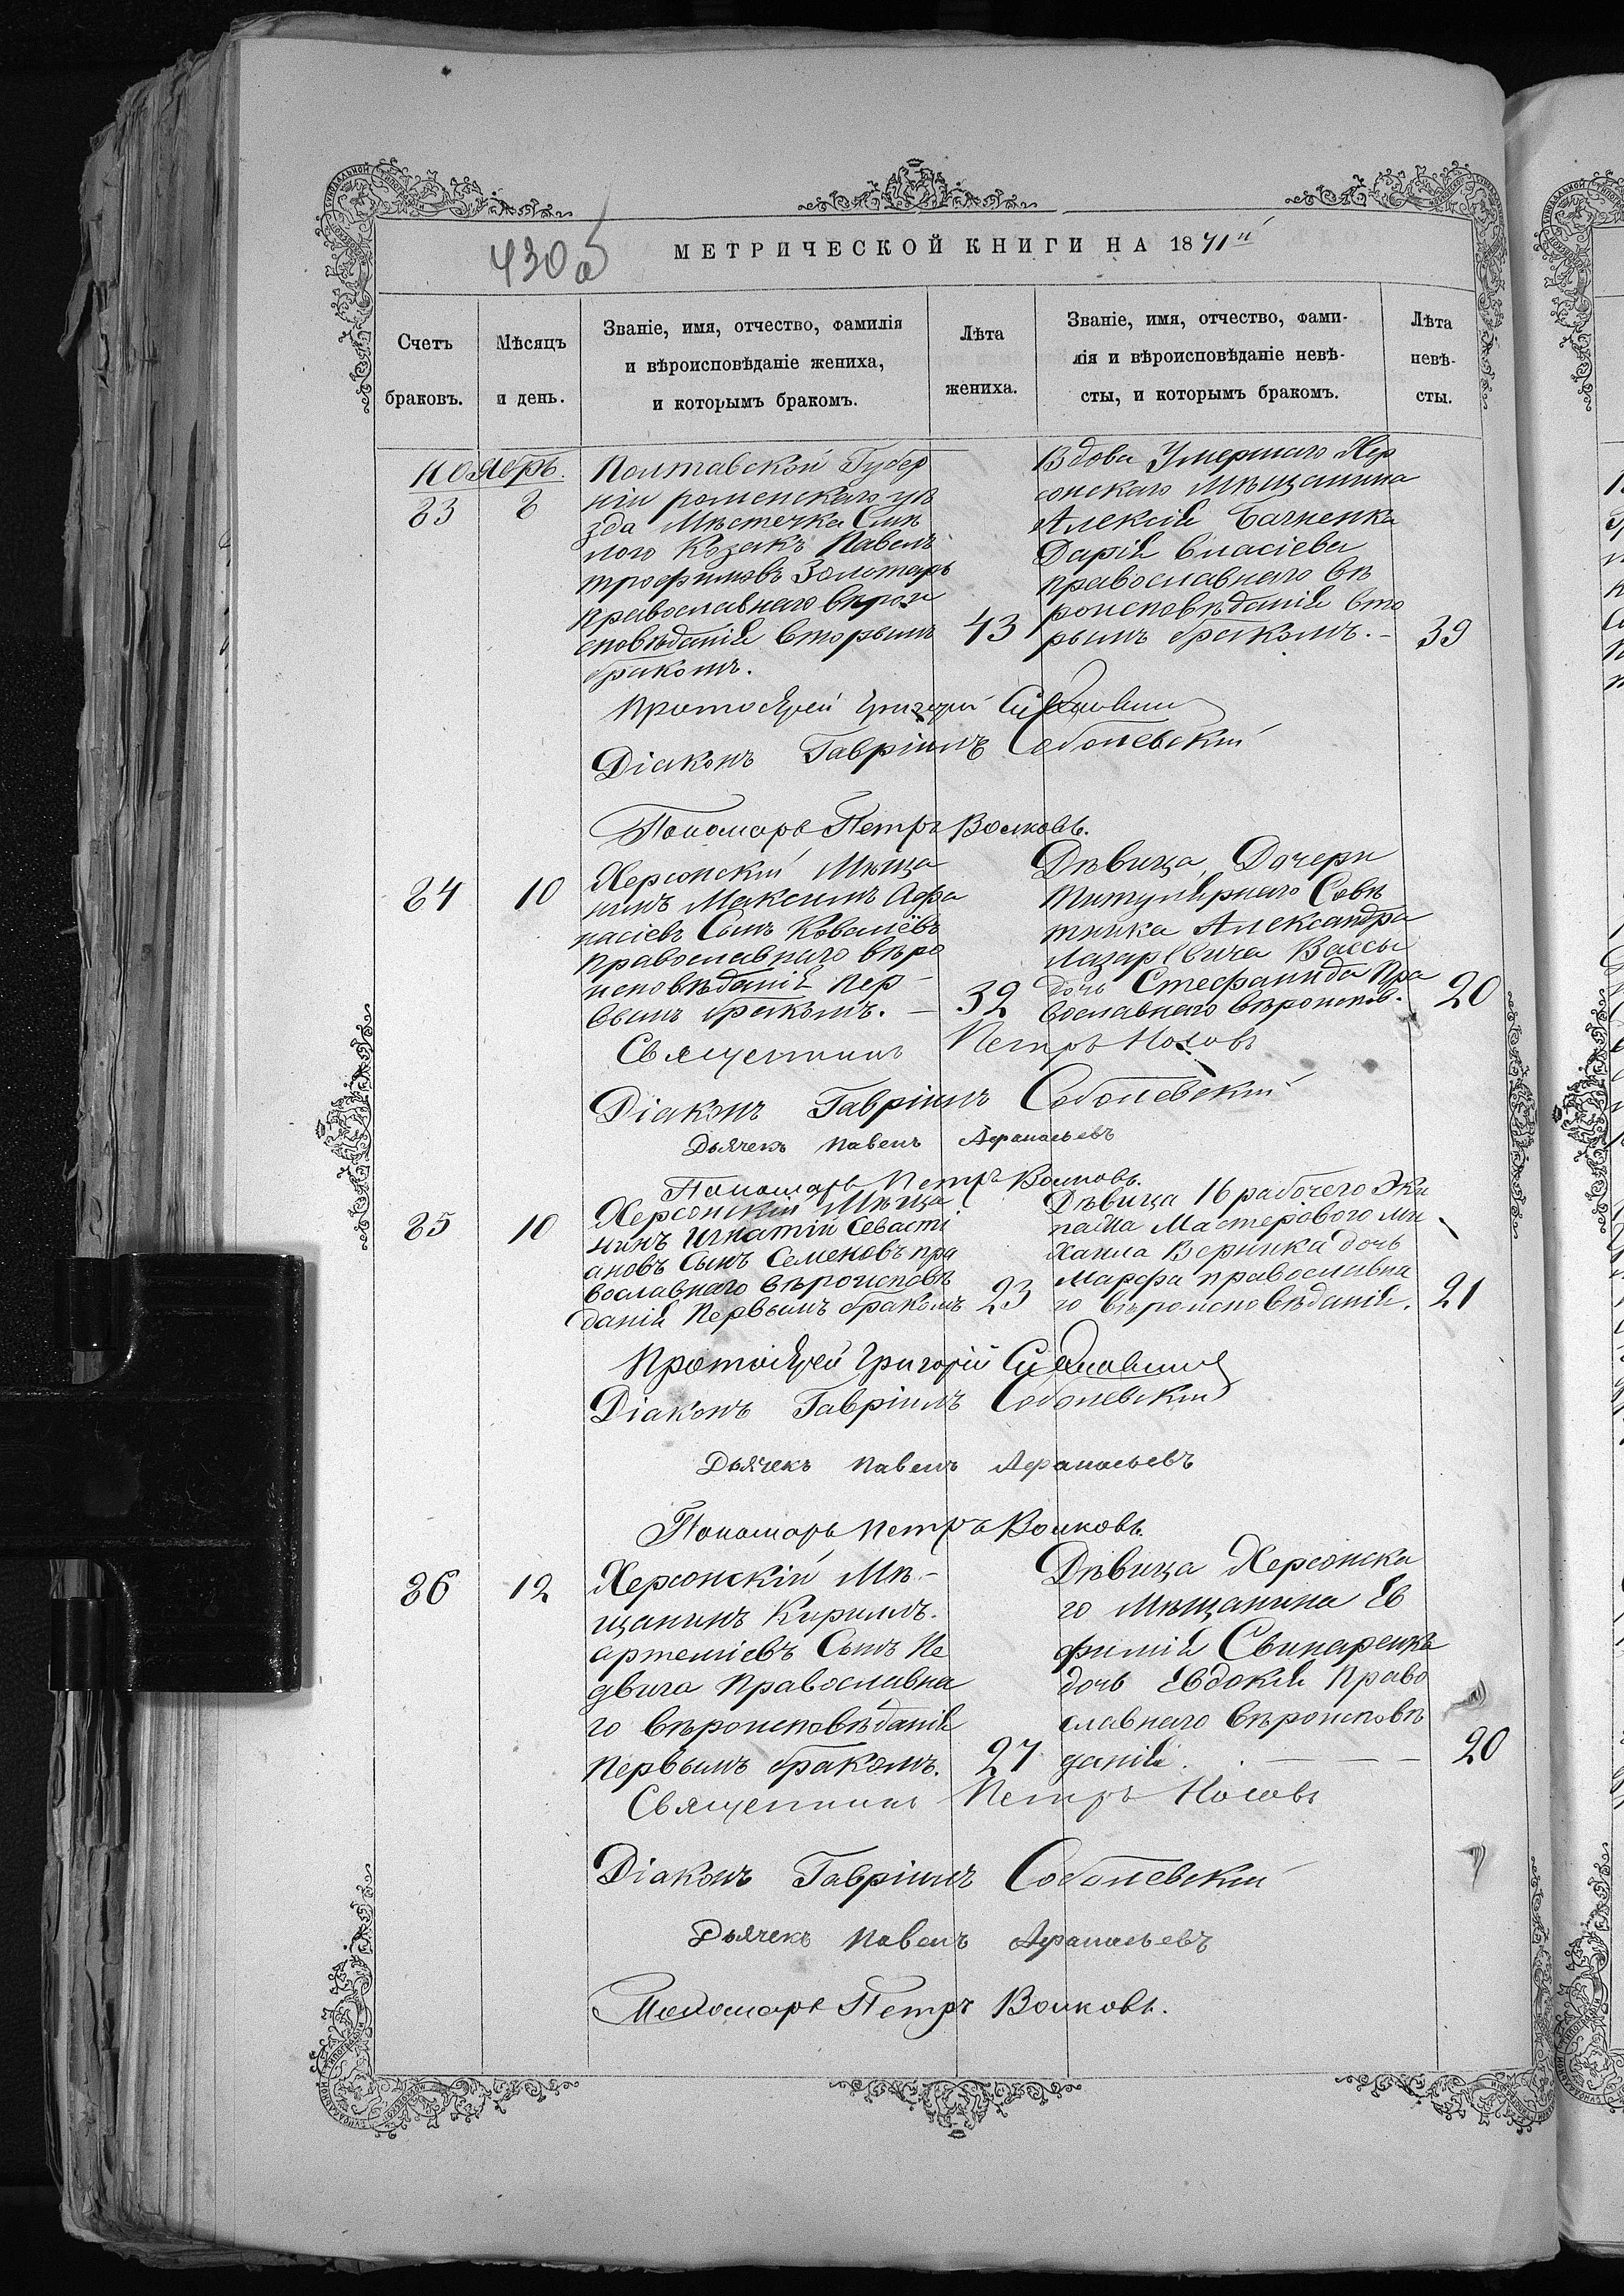 430 об
МЕТРИЧЕСКОЙ КНИГИ НА 1871й
Счетъ
браковъ.
Мѣсяцъ
и день.
Званіе, имя, отчество, фамилія
и вѣроисповѣданіе жениха,
и которымъ бракомъ.
Лѣта
жениха.
Званіе, имя, отчество, фами-
лія и вѣроисповѣданіе невѣ-
сты, и которымъ бракомъ.
Лѣта
невѣ-
сты.
Ноябрь.
83
8
Полтавской Губер
ніи роменскаго уѣ
зда Мѣстечка Смѣ
лого Козакъ Павелъ
трофимовъ Золотарь
православнаго вѣрои
сповѣданія вторымъ
бракомъ.
43
Вдова Умершаго Хер
сонскаго Мѣщанина
Алексія
Дарія Власіева
православнаго вѣ
роисповѣданія вто
рымъ бракомъ. -
39
Протоіерей Григорій
Діаконъ Гавріилъ Соболевскій
Пономарь Петръ Волковъ.
84
10
Херсонскій Мѣща
нинъ Максимъ Афа
насіевъ Сынъ Ковалёвъ
православнаго вѣро
исповѣданія пер-
вымъ бракомъ. -
32
Дѣвица, Дочери
Титулярнаго Совѣ
тника Александра
Лазаревича Вассы
дочь Стефанида Пра
вославнаго вѣроиспов.
20
Священникъ Петръ Носовъ
Діаконъ Гавріилъ Соболевскій
Дьячекъ Павелъ Афанасьевъ
Пономарь Петръ Волковъ.
85
10
Херсонскій Мѣща
нинъ Игнатій Севасті
ановъ Сынъ Семеновъ пра
вославнаго вѣроисповѣ
данія Первымъ бракомъ
23
Дѣвица 16 рабочего Эки
пажа Мастерового Ми
хаила Верника дочь
Марфа православна
го вѣроисповѣданія.
21
Протоіерей Григорій
Діаконъ Гавріилъ Соболевскій
Дьячекъ Павелъ Афанасьевъ
Пономарь Петръ Волковъ.
86
12
Херсонскій Мѣ-
щанинъ Кириллъ.
артеміевъ Сынъ Не
двига Православна
го вѣроисповѣданія
первымъ бракомъ.
27
Дѣвица Херсонска
го Мѣщанина Ев
фимія Свинаренка
дочь Евдокія Право
славнаго вѣроисповѣ
данія.
20
Священникъ Петръ Носовъ
Діаконъ Гавріилъ Соболевскій
Дьячекъ Павелъ Афанасьевъ
Пономарь Петръ Волковъ.